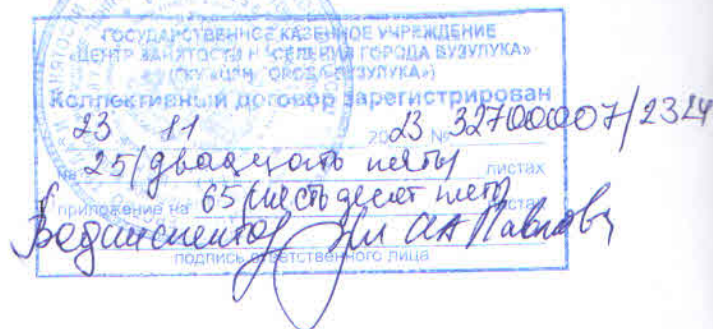 ГОСУДАРСТВЕННОЕ КАЗЕННОЕ УЧРЕЖДЕНИЕ
«ЦЕНТР ЗАНЯТОСТИ НАСЕЛЕНИЯ ГОРОДА БУЗУЛУКА»
(ГКУ «ЦЗН ГОРОДА БУЗУЛУКА»)
Коллективный договор зарегистрирован
23 11 2023 № 32700007/2324
на 25 (двадцать пять) листах
приложение на 65 (шестьдесят пять) листах
Вед. инспектор Павлова
подпись ответственного лица